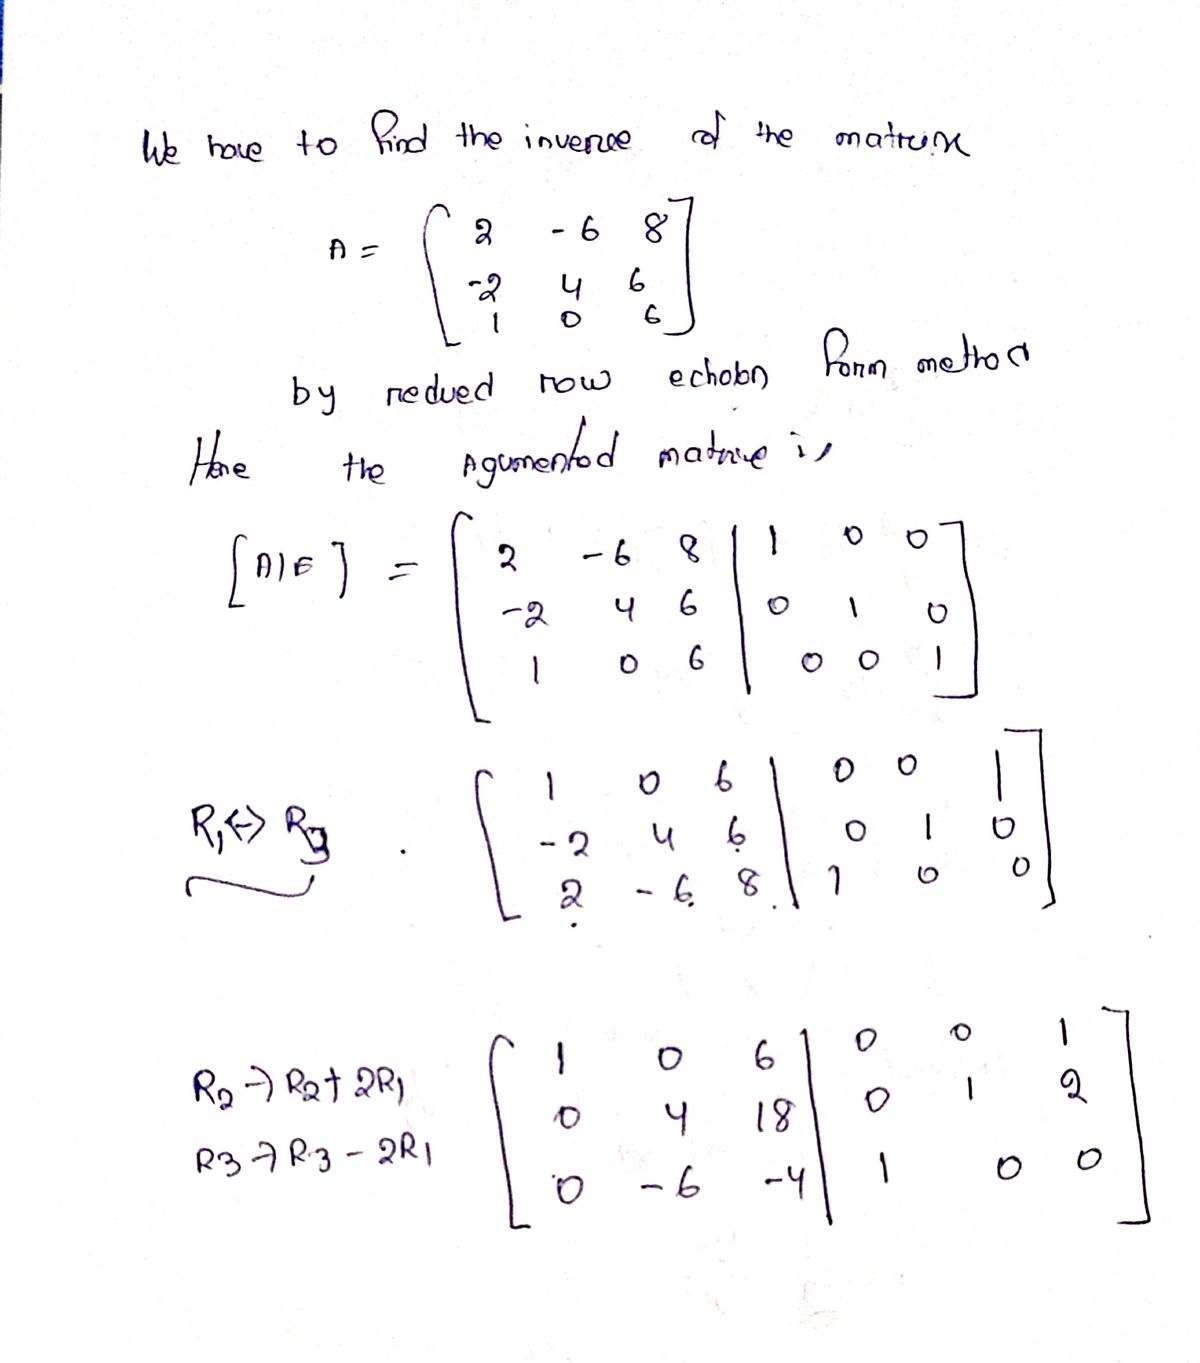 We have to find the inverse of the matrix
A = [ 2 -6 8
-2 4 6
1 0 6 ]
by redued row echobn form method
Here the Agumented matrix is
[A|E] = [ 2 -6 8 | 1 0 0
-2 4 6 | 0 1 0
1 0 6 | 0 0 1 ]
R1 ↔ R3 [ 1 0 6 | 0 0 1
-2 4 6 | 0 1 0
2 -6 8 | 1 0 0 ]
[ 1 0 6 | 0 0 1
R2 → R2 + 2R1 0 4 18 | 0 1 2
R3 → R3 - 2R1 0 -6 -4 | 1 0 0 ]